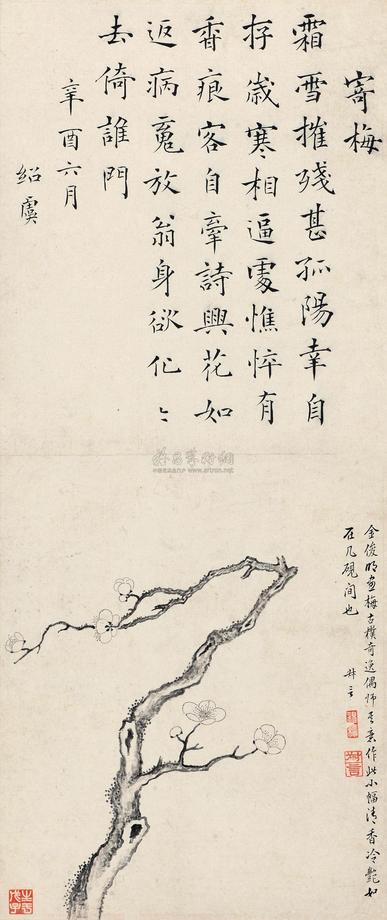 寄梅
霜雪摧殘甚孤陽幸自
存歲寒相逼處憔悴有
香痕客自牽詩興花如
返病䰟放翁身欲化〻
去倚誰門
辛酉六月
紹虞
金俊明畫梅古樸奇逸偶師其意作此小幅清香冷艷如
在几硯間也
www.artron.net